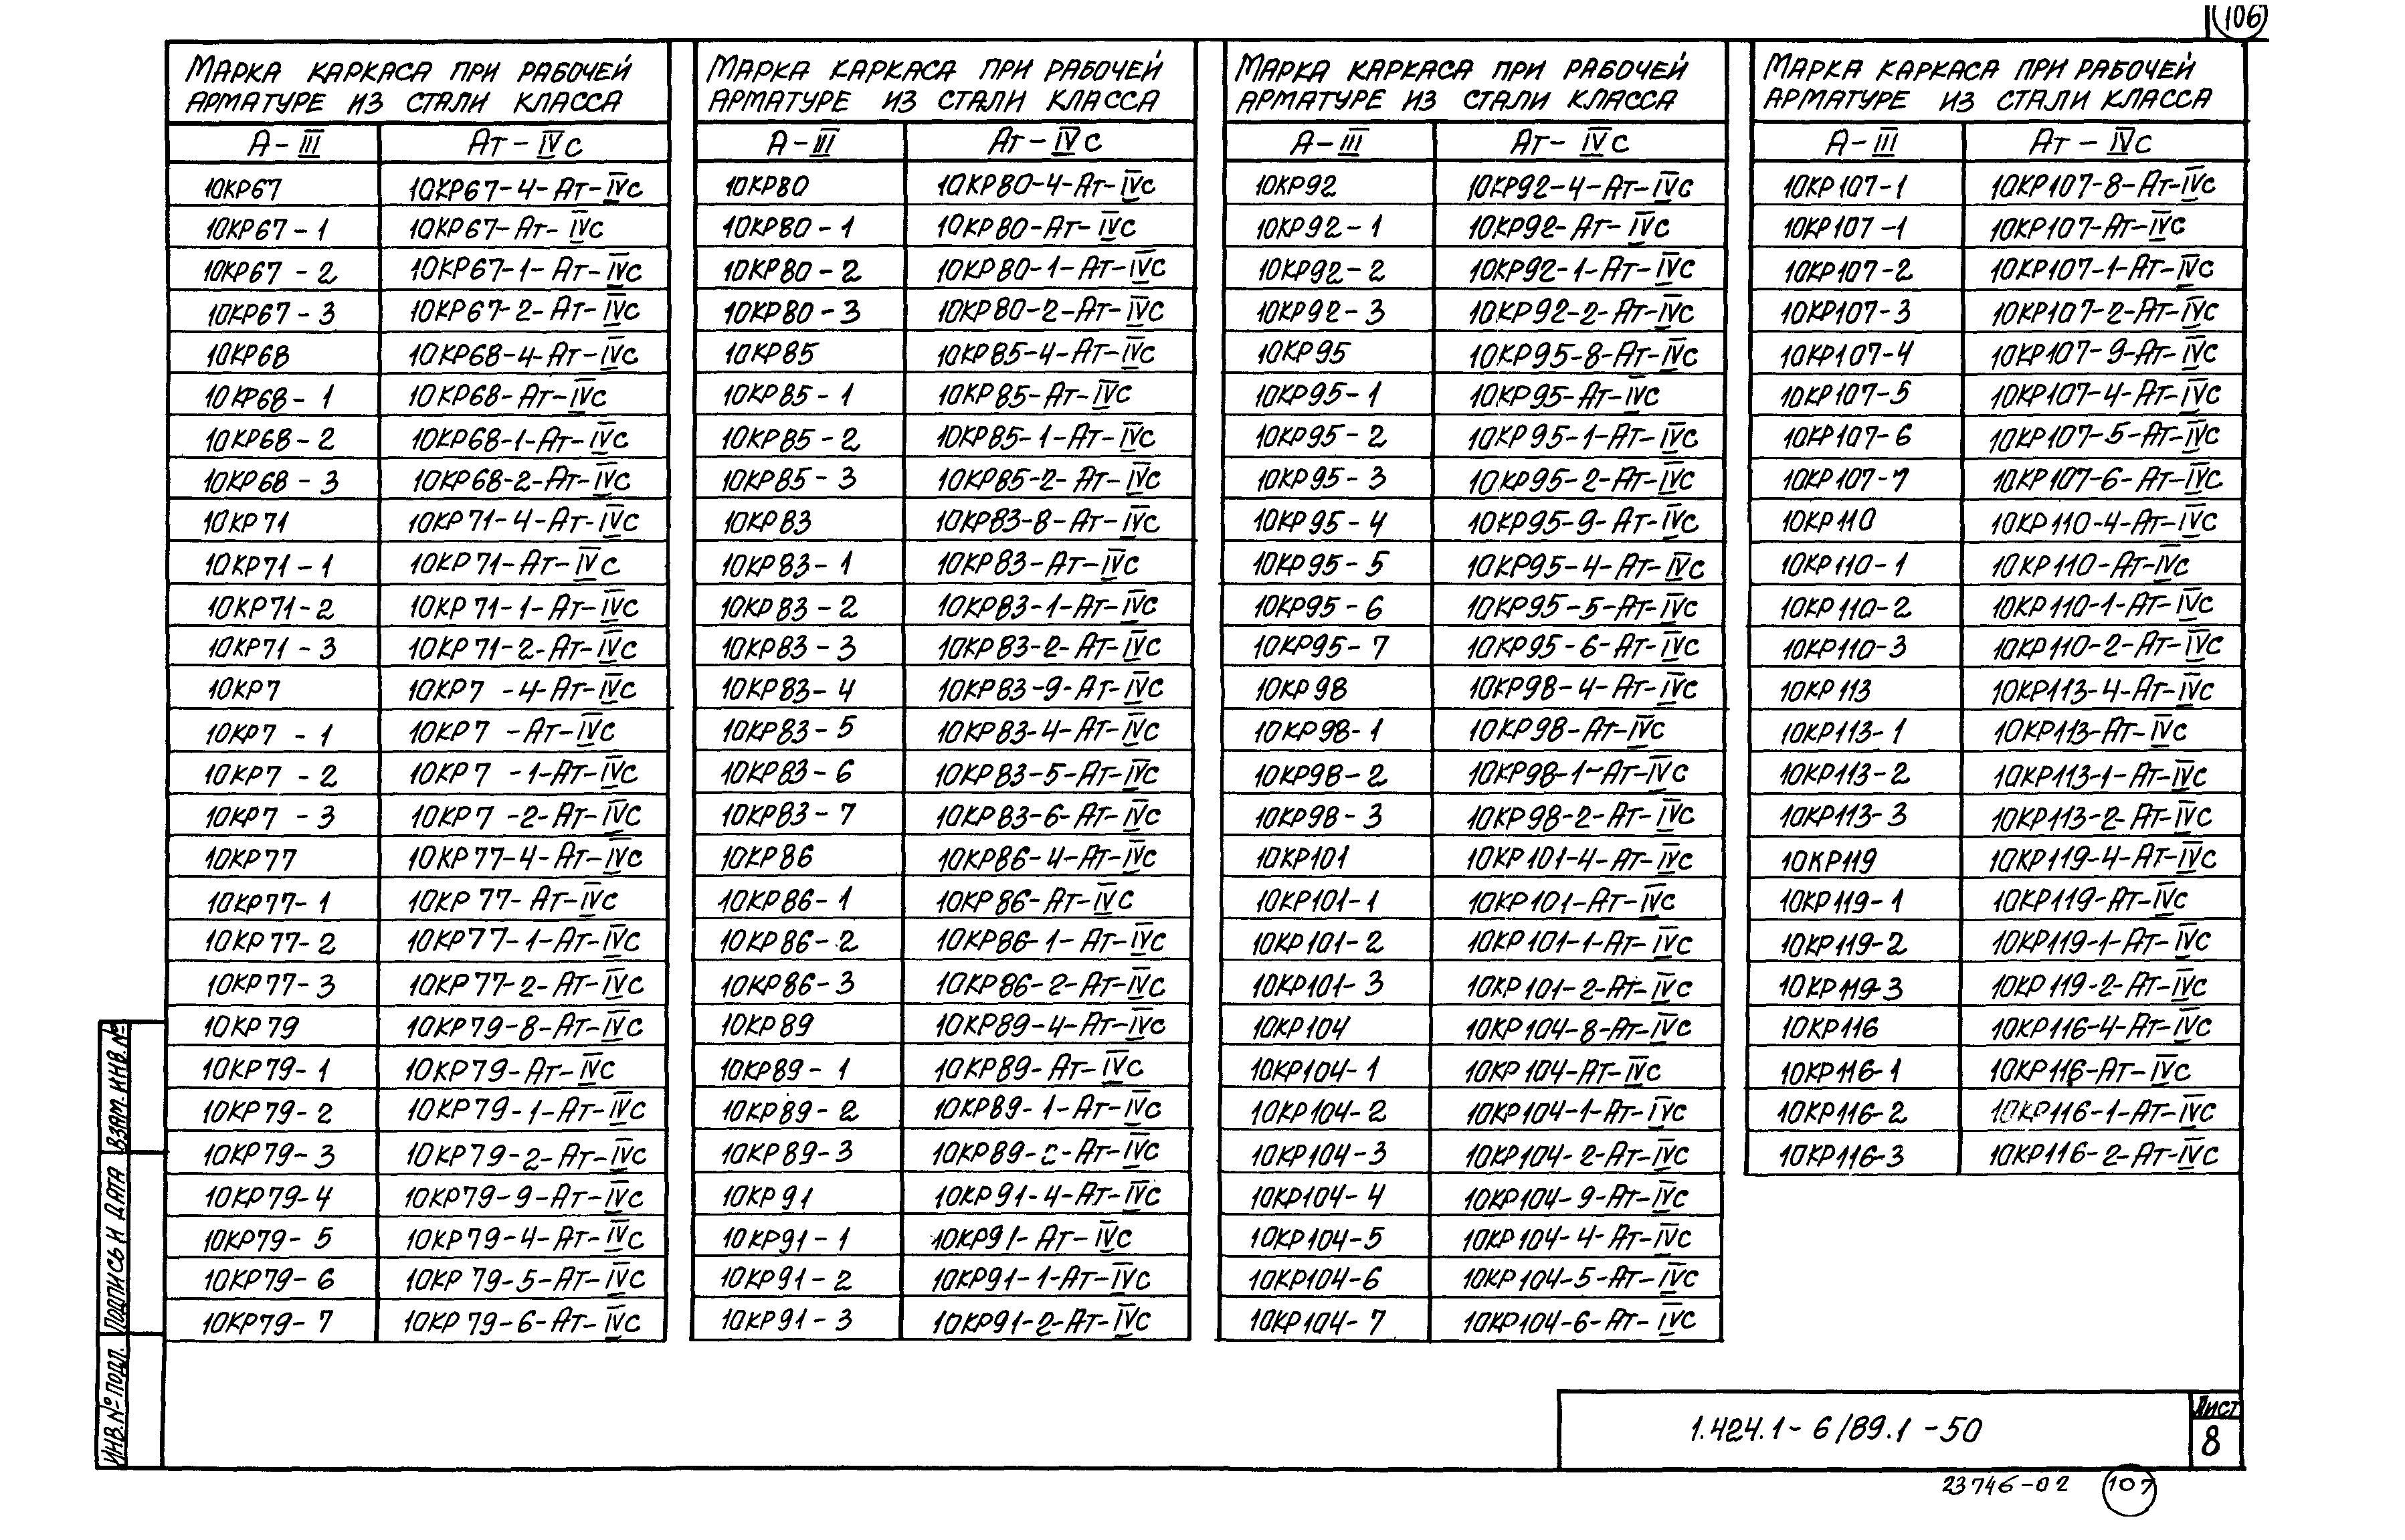 106
МАРКА КАРКАСА ПРИ РАБОЧЕЙ
АРМАТУРЕ ИЗ СТАЛИ КЛАССА
А-III Ат-IVс
10КР67 10КР67-4-Ат-IVс
10КР67-1 10КР67-Ат-IVс
10КР67-2 10КР67-1-Ат-IVс
10КР67-3 10КР67-2-Ат-IVс
10КР68 10КР68-4-Ат-IVс
10КР68-1 10КР68-Ат-IVс
10КР68-2 10КР68-1-Ат-IVс
10КР68-3 10КР68-2-Ат-IVс
10КР71 10КР71-4-Ат-IVс
10КР71-1 10КР71-Ат-IVс
10КР71-2 10КР71-1-Ат-IVс
10КР71-3 10КР71-2-Ат-IVс
10КР7 10КР7 -4-Ат-IVс
10КР7 -1 10КР7 -Ат-IVс
10КР7 -2 10КР7 -1-Ат-IVс
10КР7 -3 10КР7 -2-Ат-IVс
10КР77 10КР77-4-Ат-IVс
10КР77-1 10КР77-Ат-IVс
10КР77-2 10КР77-1-Ат-IVс
10КР77-3 10КР77-2-Ат-IVс
10КР79 10КР79-8-Ат-IVс
10КР79-1 10КР79-Ат-IVс
10КР79-2 10КР79-1-Ат-IVс
10КР79-3 10КР79-2-Ат-IVс
10КР79-4 10КР79-9-Ат-IVс
10КР79-5 10КР79-4-Ат-IVс
10КР79-6 10КР79-5-Ат-IVс
10КР79-7 10КР79-6-Ат-IVс
МАРКА КАРКАСА ПРИ РАБОЧЕЙ
АРМАТУРЕ ИЗ СТАЛИ КЛАССА
А-III Ат-IVс
10КР80 10КР80-4-Ат-IVс
10КР80-1 10КР80-Ат-IVс
10КР80-2 10КР80-1-Ат-IVс
10КР80-3 10КР80-2-Ат-IVс
10КР85 10КР85-4-Ат-IVс
10КР85-1 10КР85-Ат-IVс
10КР85-2 10КР85-1-Ат-IVс
10КР85-3 10КР85-2-Ат-IVс
10КР83 10КР83-8-Ат-IVс
10КР83-1 10КР83-Ат-IVс
10КР83-2 10КР83-1-Ат-IVс
10КР83-3 10КР83-2-Ат-IVс
10КР83-4 10КР83-9-Ат-IVс
10КР83-5 10КР83-4-Ат-IVс
10КР83-6 10КР83-5-Ат-IVс
10КР83-7 10КР83-6-Ат-IVс
10КР86 10КР86-4-Ат-IVс
10КР86-1 10КР86-Ат-IVс
10КР86-2 10КР86-1-Ат-IVс
10КР86-3 10КР86-2-Ат-IVс
10КР89 10КР89-4-Ат-IVс
10КР89-1 10КР89-Ат-IVс
10КР89-2 10КР89-1-Ат-IVс
10КР89-3 10КР89-2-Ат-IVс
10КР91 10КР91-4-Ат-IVс
10КР91-1 10КР91-Ат-IVс
10КР91-2 10КР91-1-Ат-IVс
10КР91-3 10КР91-2-Ат-IVс
МАРКА КАРКАСА ПРИ РАБОЧЕЙ
АРМАТУРЕ ИЗ СТАЛИ КЛАССА
А-III Ат-IVс
10КР92 10КР92-4-Ат-IVс
10КР92-1 10КР92-Ат-IVс
10КР92-2 10КР92-1-Ат-IVс
10КР92-3 10КР92-2-Ат-IVс
10КР95 10КР95-8-Ат-IVс
10КР95-1 10КР95-Ат-IVс
10КР95-2 10КР95-1-Ат-IVс
10КР95-3 10КР95-2-Ат-IVс
10КР95-4 10КР95-9-Ат-IVс
10КР95-5 10КР95-4-Ат-IVс
10КР95-6 10КР95-5-Ат-IVс
10КР95-7 10КР95-6-Ат-IVс
10КР98 10КР98-4-Ат-IVс
10КР98-1 10КР98-Ат-IVс
10КР98-2 10КР98-1-Ат-IVс
10КР98-3 10КР98-2-Ат-IVс
10КР101 10КР101-4-Ат-IVс
10КР101-1 10КР101-Ат-IVс
10КР101-2 10КР101-1-Ат-IVс
10КР101-3 10КР101-2-Ат-IVс
10КР104 10КР104-8-Ат-IVс
10КР104-1 10КР104-Ат-IVс
10КР104-2 10КР104-1-Ат-IVс
10КР104-3 10КР104-2-Ат-IVс
10КР104-4 10КР104-9-Ат-IVс
10КР104-5 10КР104-4-Ат-IVс
10КР104-6 10КР104-5-Ат-IVс
10КР104-7 10КР104-6-Ат-IVс
МАРКА КАРКАСА ПРИ РАБОЧЕЙ
АРМАТУРЕ ИЗ СТАЛИ КЛАССА
А-III Ат-IVс
10КР107-1 10КР107-8-Ат-IVс
10КР107-1 10КР107-Ат-IVс
10КР107-2 10КР107-1-Ат-IVс
10КР107-3 10КР107-2-Ат-IVс
10КР107-4 10КР107-9-Ат-IVс
10КР107-5 10КР107-4-Ат-IVс
10КР107-6 10КР107-5-Ат-IVс
10КР107-7 10КР107-6-Ат-IVс
10КР110 10КР110-4-Ат-IVс
10КР110-1 10КР110-Ат-IVс
10КР110-2 10КР110-1-Ат-IVс
10КР110-3 10КР110-2-Ат-IVс
10КР113 10КР113-4-Ат-IVс
10КР113-1 10КР113-Ат-IVс
10КР113-2 10КР113-1-Ат-IVс
10КР113-3 10КР113-2-Ат-IVс
10КР119 10КР119-4-Ат-IVс
10КР119-1 10КР119-Ат-IVс
10КР119-2 10КР119-1-Ат-IVс
10КР119-3 10КР119-2-Ат-IVс
10КР116 10КР116-4-Ат-IVс
10КР116-1 10КР116-Ат-IVс
10КР116-2 10КР116-1-Ат-IVс
10КР116-3 10КР116-2-Ат-IVс
ВЗАМ. ИНВ. №
ПОДПИСЬ И ДАТА
ИНВ. № ПОДЛ.
1.424.1-6/89.1-50
Лист
8
23746-02
107